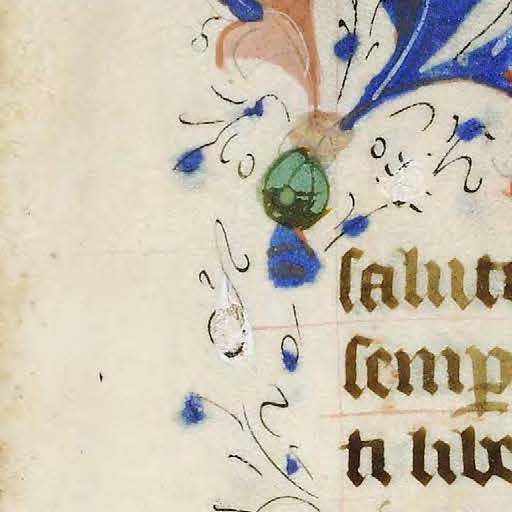 salute
semp
ti libe